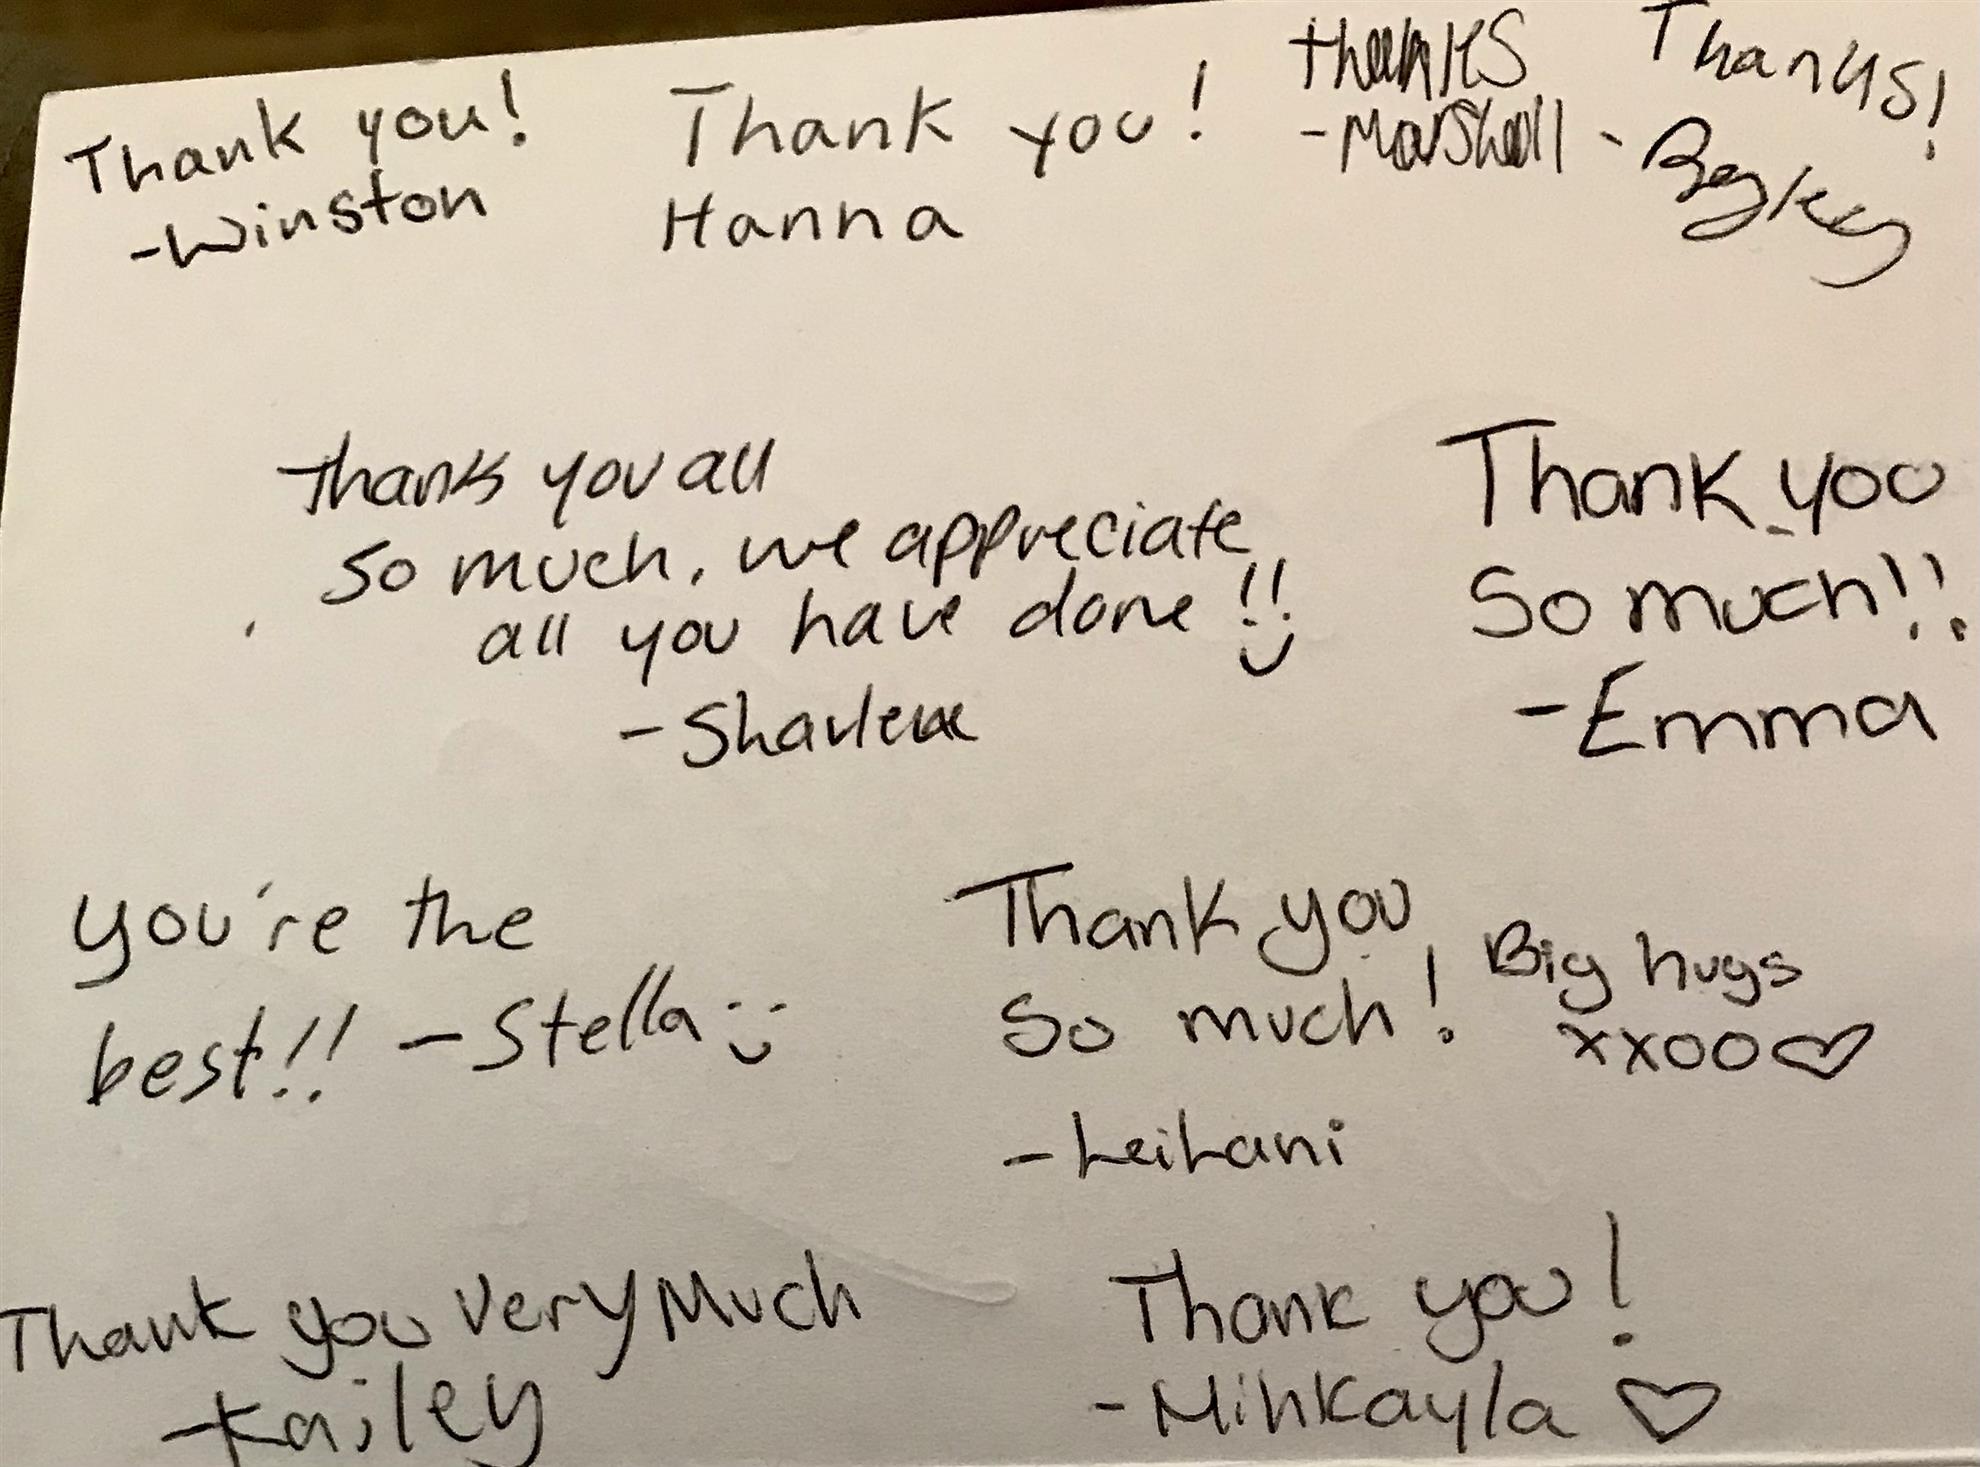 Thank you!
-Winston
Thank you!
Hanna
thanks
-Marshall
Thanks!
-
Thank you all
so much, we appreciate
all you have done!!
-Sharlene
Thank you
So much!!
-Emma
you're the
best!! -Stella
Thank you
So much!
-Leilani
Big hugs
xxoo
Thank you very Much
-Kailey
Thank you!
-Mihkayla